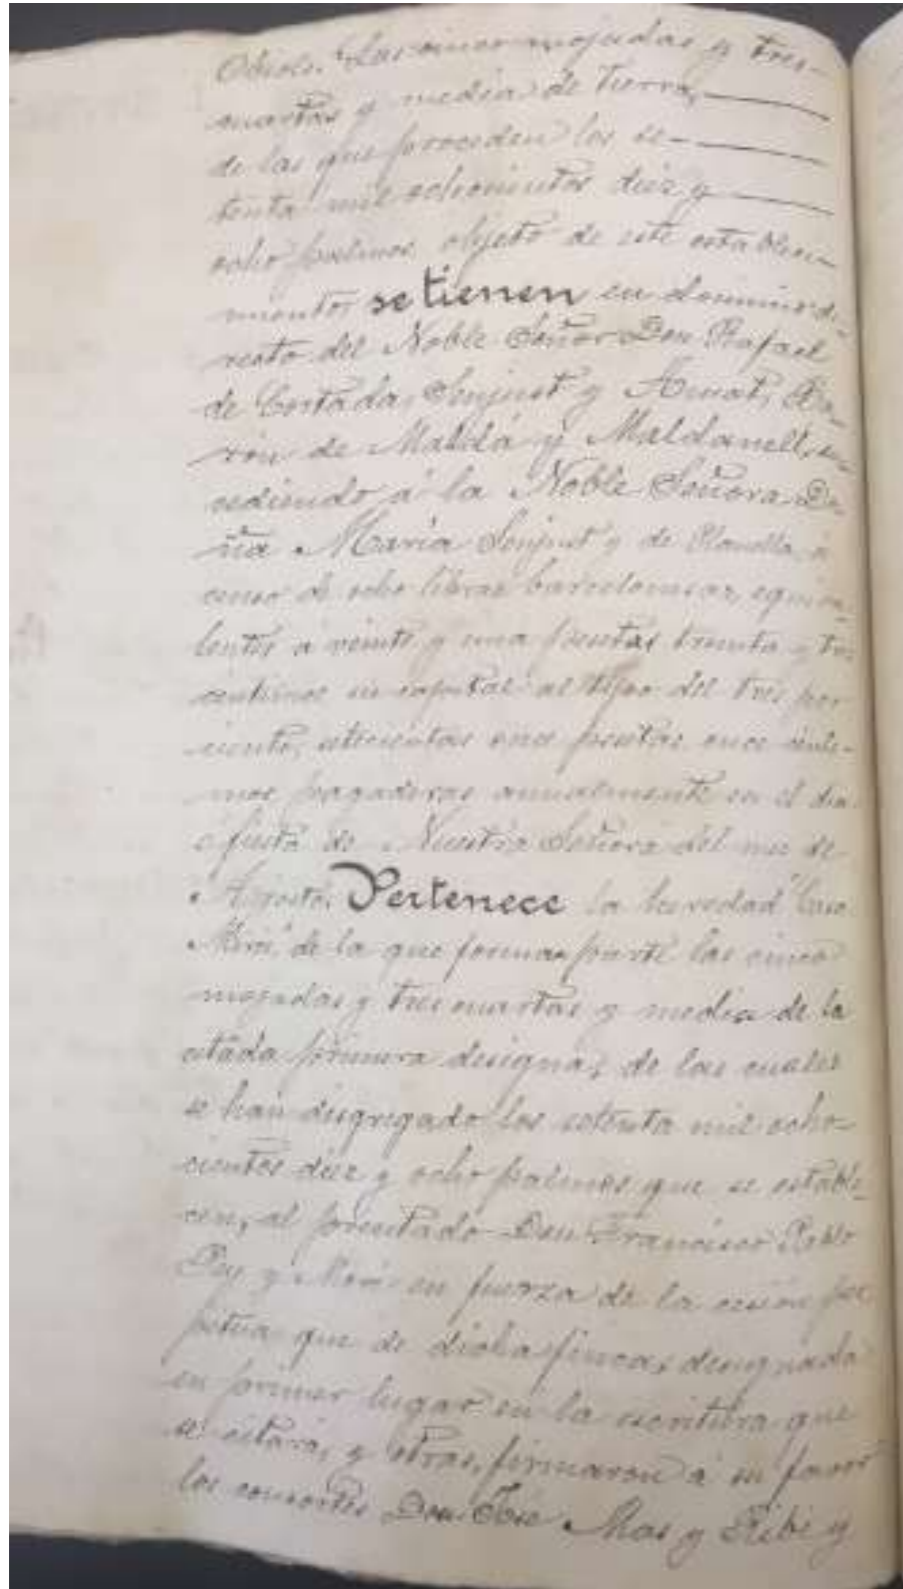 Obiols. Las cinco mojadas y tres
cuartas y media de tierra,
de las que proceden los se-
tenta mil ochocientos diez y
ocho palmos, objeto de este estableci-
miento, se tienen en dominio di-
recto del Noble Señor Don Rafael
de Cortada, Senjust y Amat, Ba-
rón de Maldá y Maldanell, su-
cediendo á la Noble Señora Do-
ña María Senjust y de Planella, á
censo de ocho libras barcelonesas, equiva-
lentes á veinte y una pesetas treinta y tres
centimos su capital al tipo del tres por
ciento, setecientas once pesetas once cénti-
mos pagaderas anualmente en el dia
ó fiesta de Nuestra Señora del mes de
Agosto. Pertenece la heredad "Casa
Miró" de la que forman parte las cinco
mojadas y tres cuartas y media de la
citada primera designa, de las cuales
se han disgregado los setenta mil ocho-
cientos diez y ocho palmos que se estable-
cen, al presentado Don Francisco Pablo
Rey y Miró en fuerza de la cesión per-
petua que de dicha finca, designada
en primer lugar en la escritura que
se citará, y otras, firmaron á su favor
los consortes Don José Mas y Ribé y